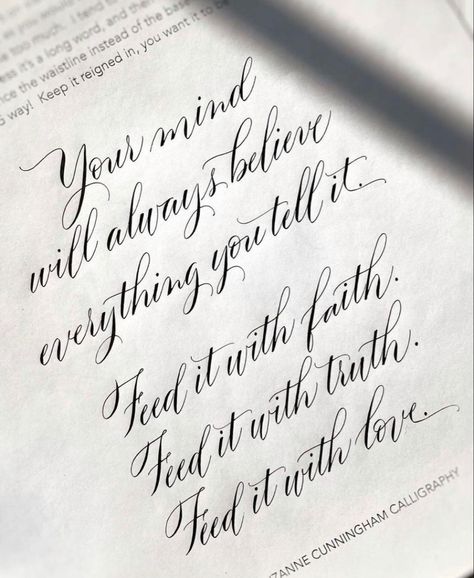 so much. I tend
ess it's a long word, and then
ice the waistline instead of the base
S way! Keep it reigned in, you want it to be
Your mind
will always believe
everything you tell it.
Feed it with faith.
Feed it with truth.
Feed it with love.
ZANNE CUNNINGHAM CALLIGRAPHY